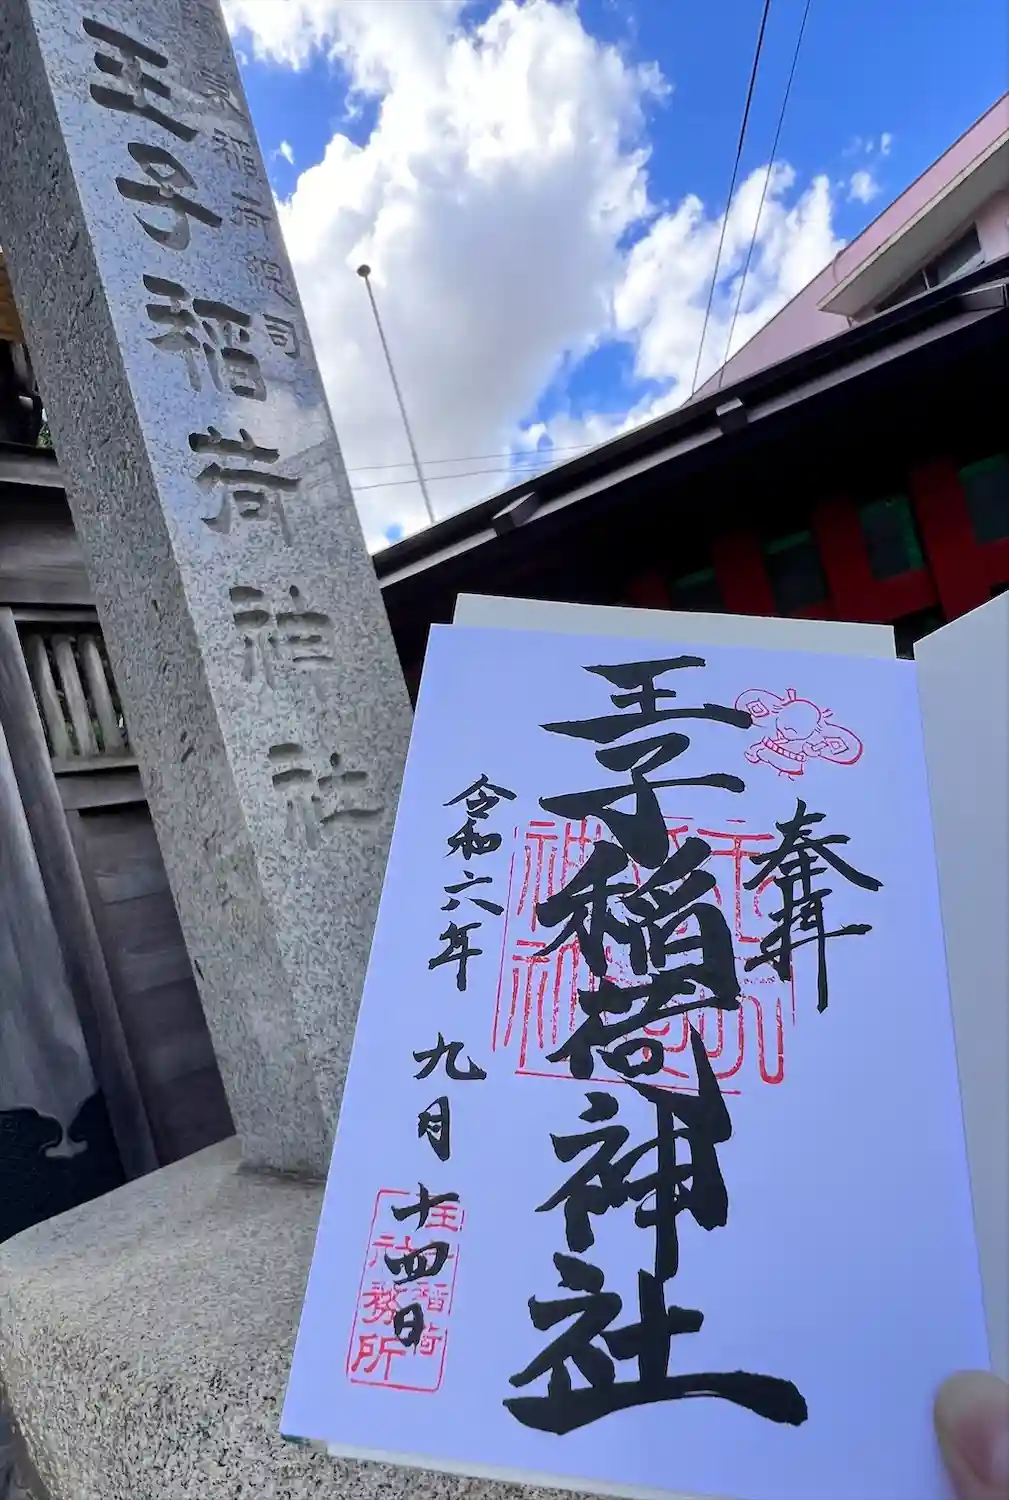 東稲荷總司
王子稲荷神社
奉拝
王子稲荷神社
令和六年
九月
十四日
王子稲荷
社務所